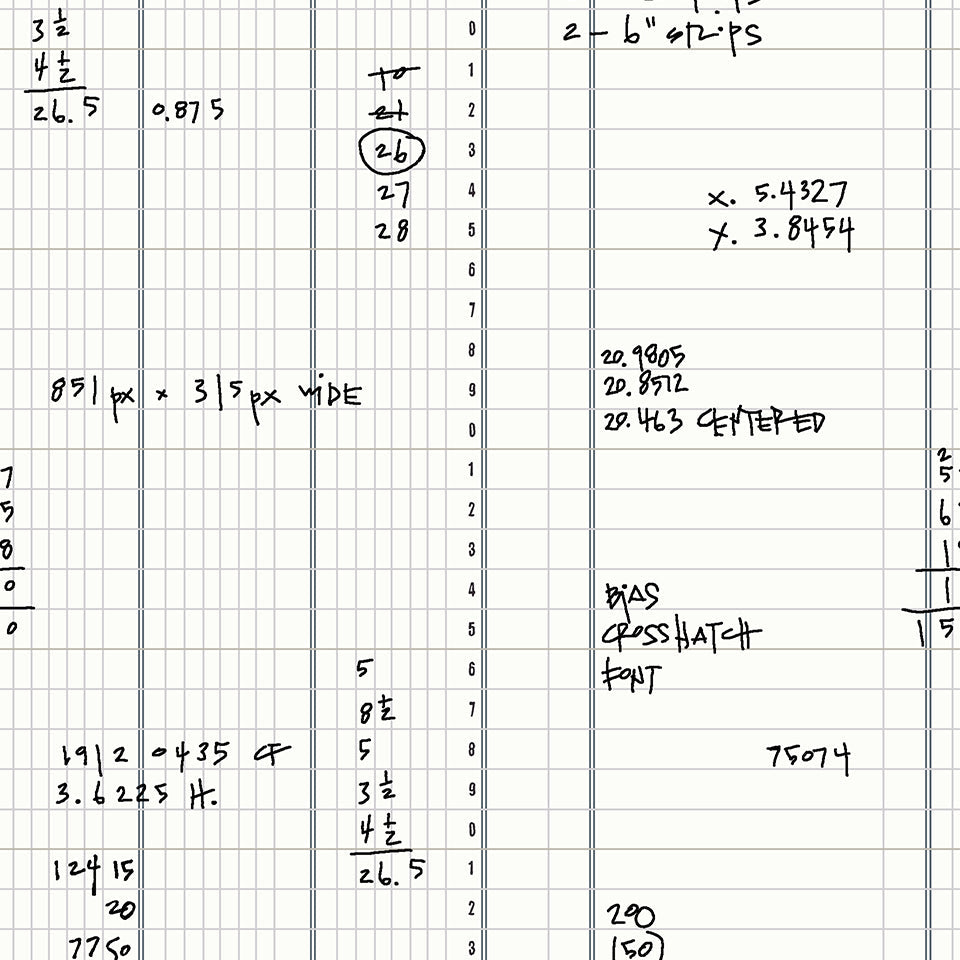 3 1/2
4 1/2
26.5
0.875
10
21
26
27
28
0
1
2
3
4
5
6
7
8
9
0
1
2
3
4
5
6
7
8
9
0
1
2
3
2 - 6" strips
x. 5.4327
y. 3.8454
851 px x 315 px WIDE
20.9805
20.8572
20.463 CENTERED
7
5
8
0
0
BIAS
CROSSHATCH
FONT
2
5
6
1
1
15
5
8 1/2
5
3 1/2
4 1/2
26.5
1912 0435 CF
3.6225 H.
75074
12415
20
7750
200
150